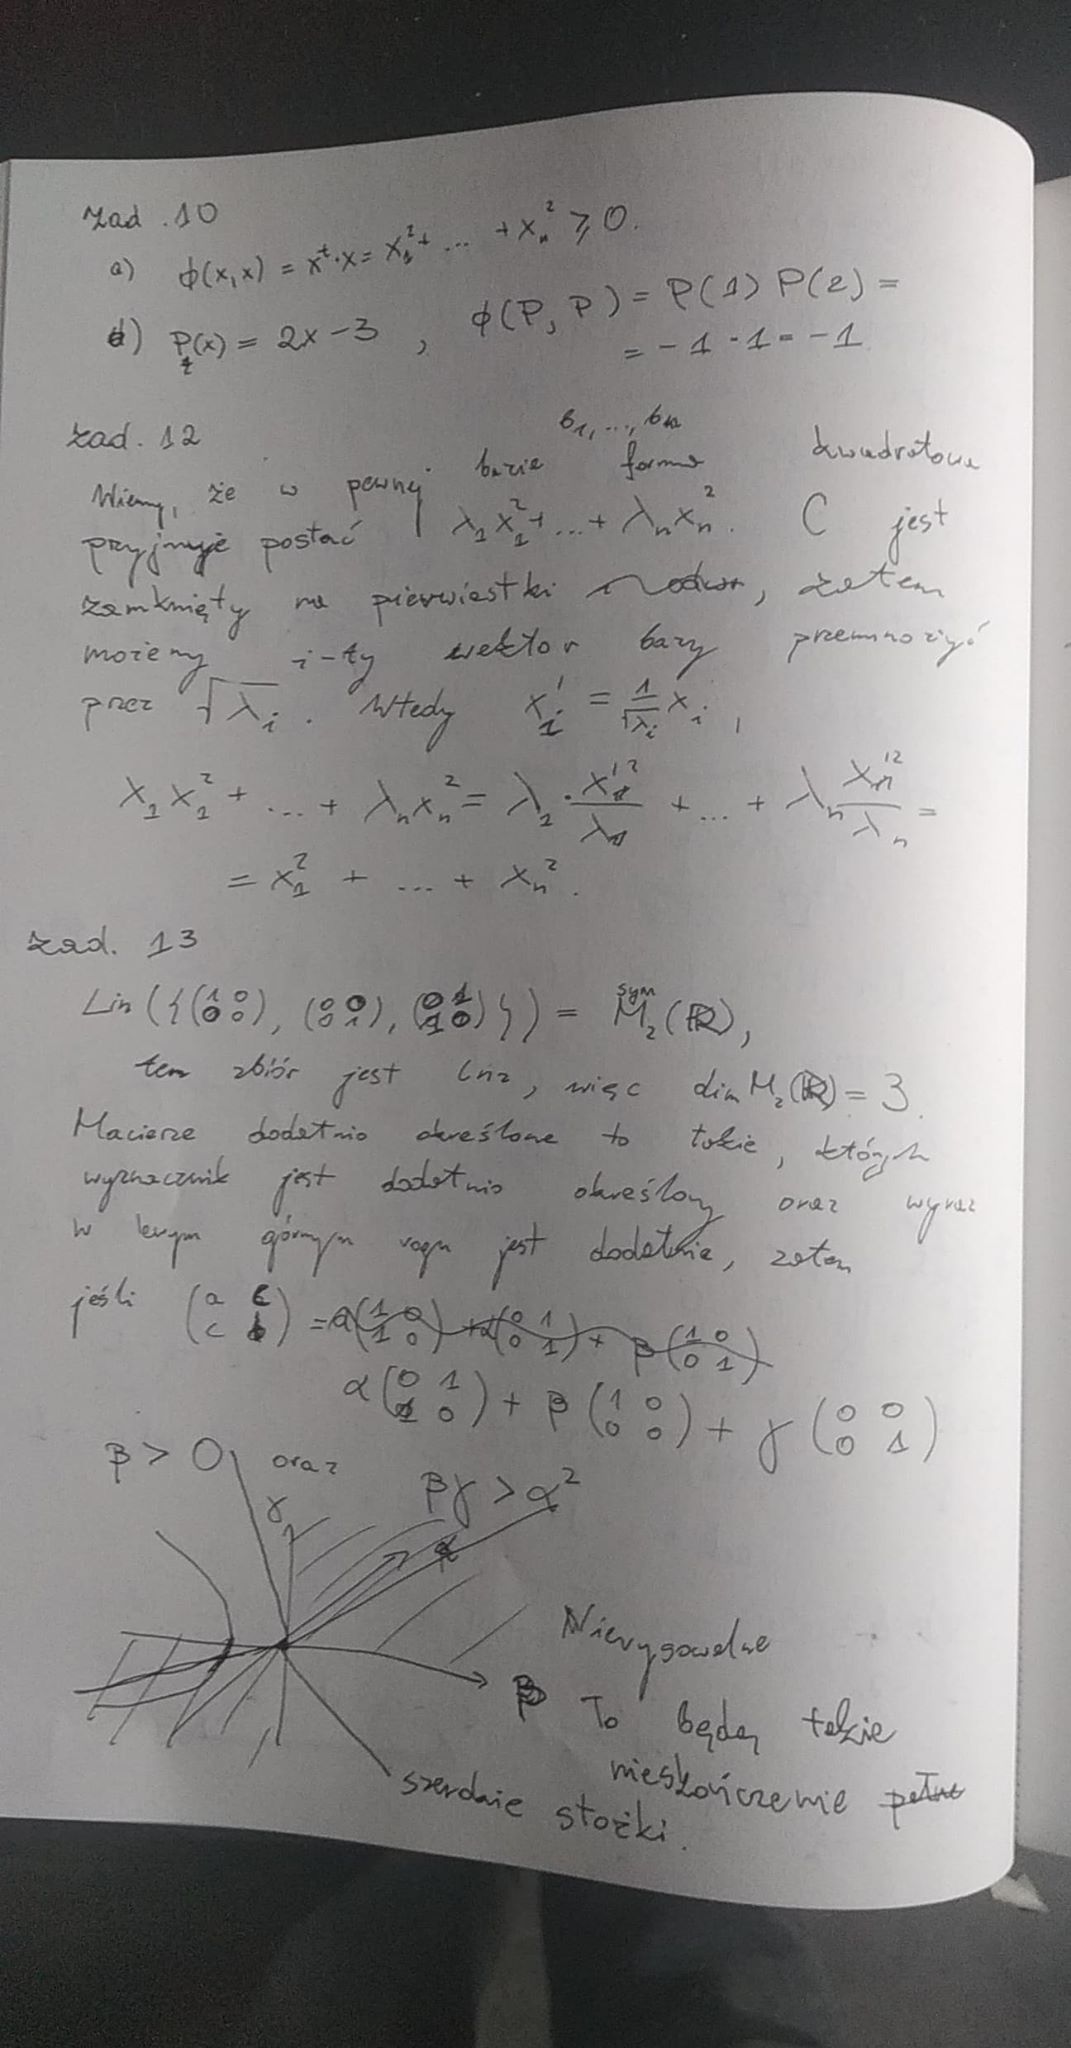 zad. 10
a) ϕ(x,x) = x^t·x = x_1^2 + ... + x_n^2 ⩾ 0.
d) P(x) = 2x - 3 , ϕ(P, P) = P(1) P(2) =
= -1 · 1 = -1
zad. 12
b_1, ..., b_n
Wiemy, że w pewnej bazie forma kwadratowa
przyjmuje postać λ_1 x_1^2 + ... + λ_n x_n^2. C jest
zamknięty na pierwiastki, zatem
możemy i-ty wektor bazy przemnożyć
przez √λ_i. Wtedy x_i' = 1/√λ_i x_i,
λ_1 x_1^2 + ... + λ_n x_n^2 = λ_1 · x_1'^2/λ_1 + ... + λ_n x_n'^2/λ_n =
= x_1^2 + ... + x_n^2.
zad. 13
Lin ({(1 0; 0 0), (0 0; 0 1), (0 1; 1 0)}) = M_2^sym(R),
ten zbiór jest lnz, więc dim M_2(R) = 3.
Macierze dodatnio określone to takie, których
wyznacznik jest dodatnio określony oraz wyraz
w lewym górnym rogu jest dodatnie, zatem
jeśli (a c; c b) =
α(0 1; 1 0) + β(1 0; 0 0) + γ(0 0; 0 1)
β > 0 oraz βγ > α^2
γ
α
β
Nierysowalne
To będą takie
nieskończenie
szerokie stożki.